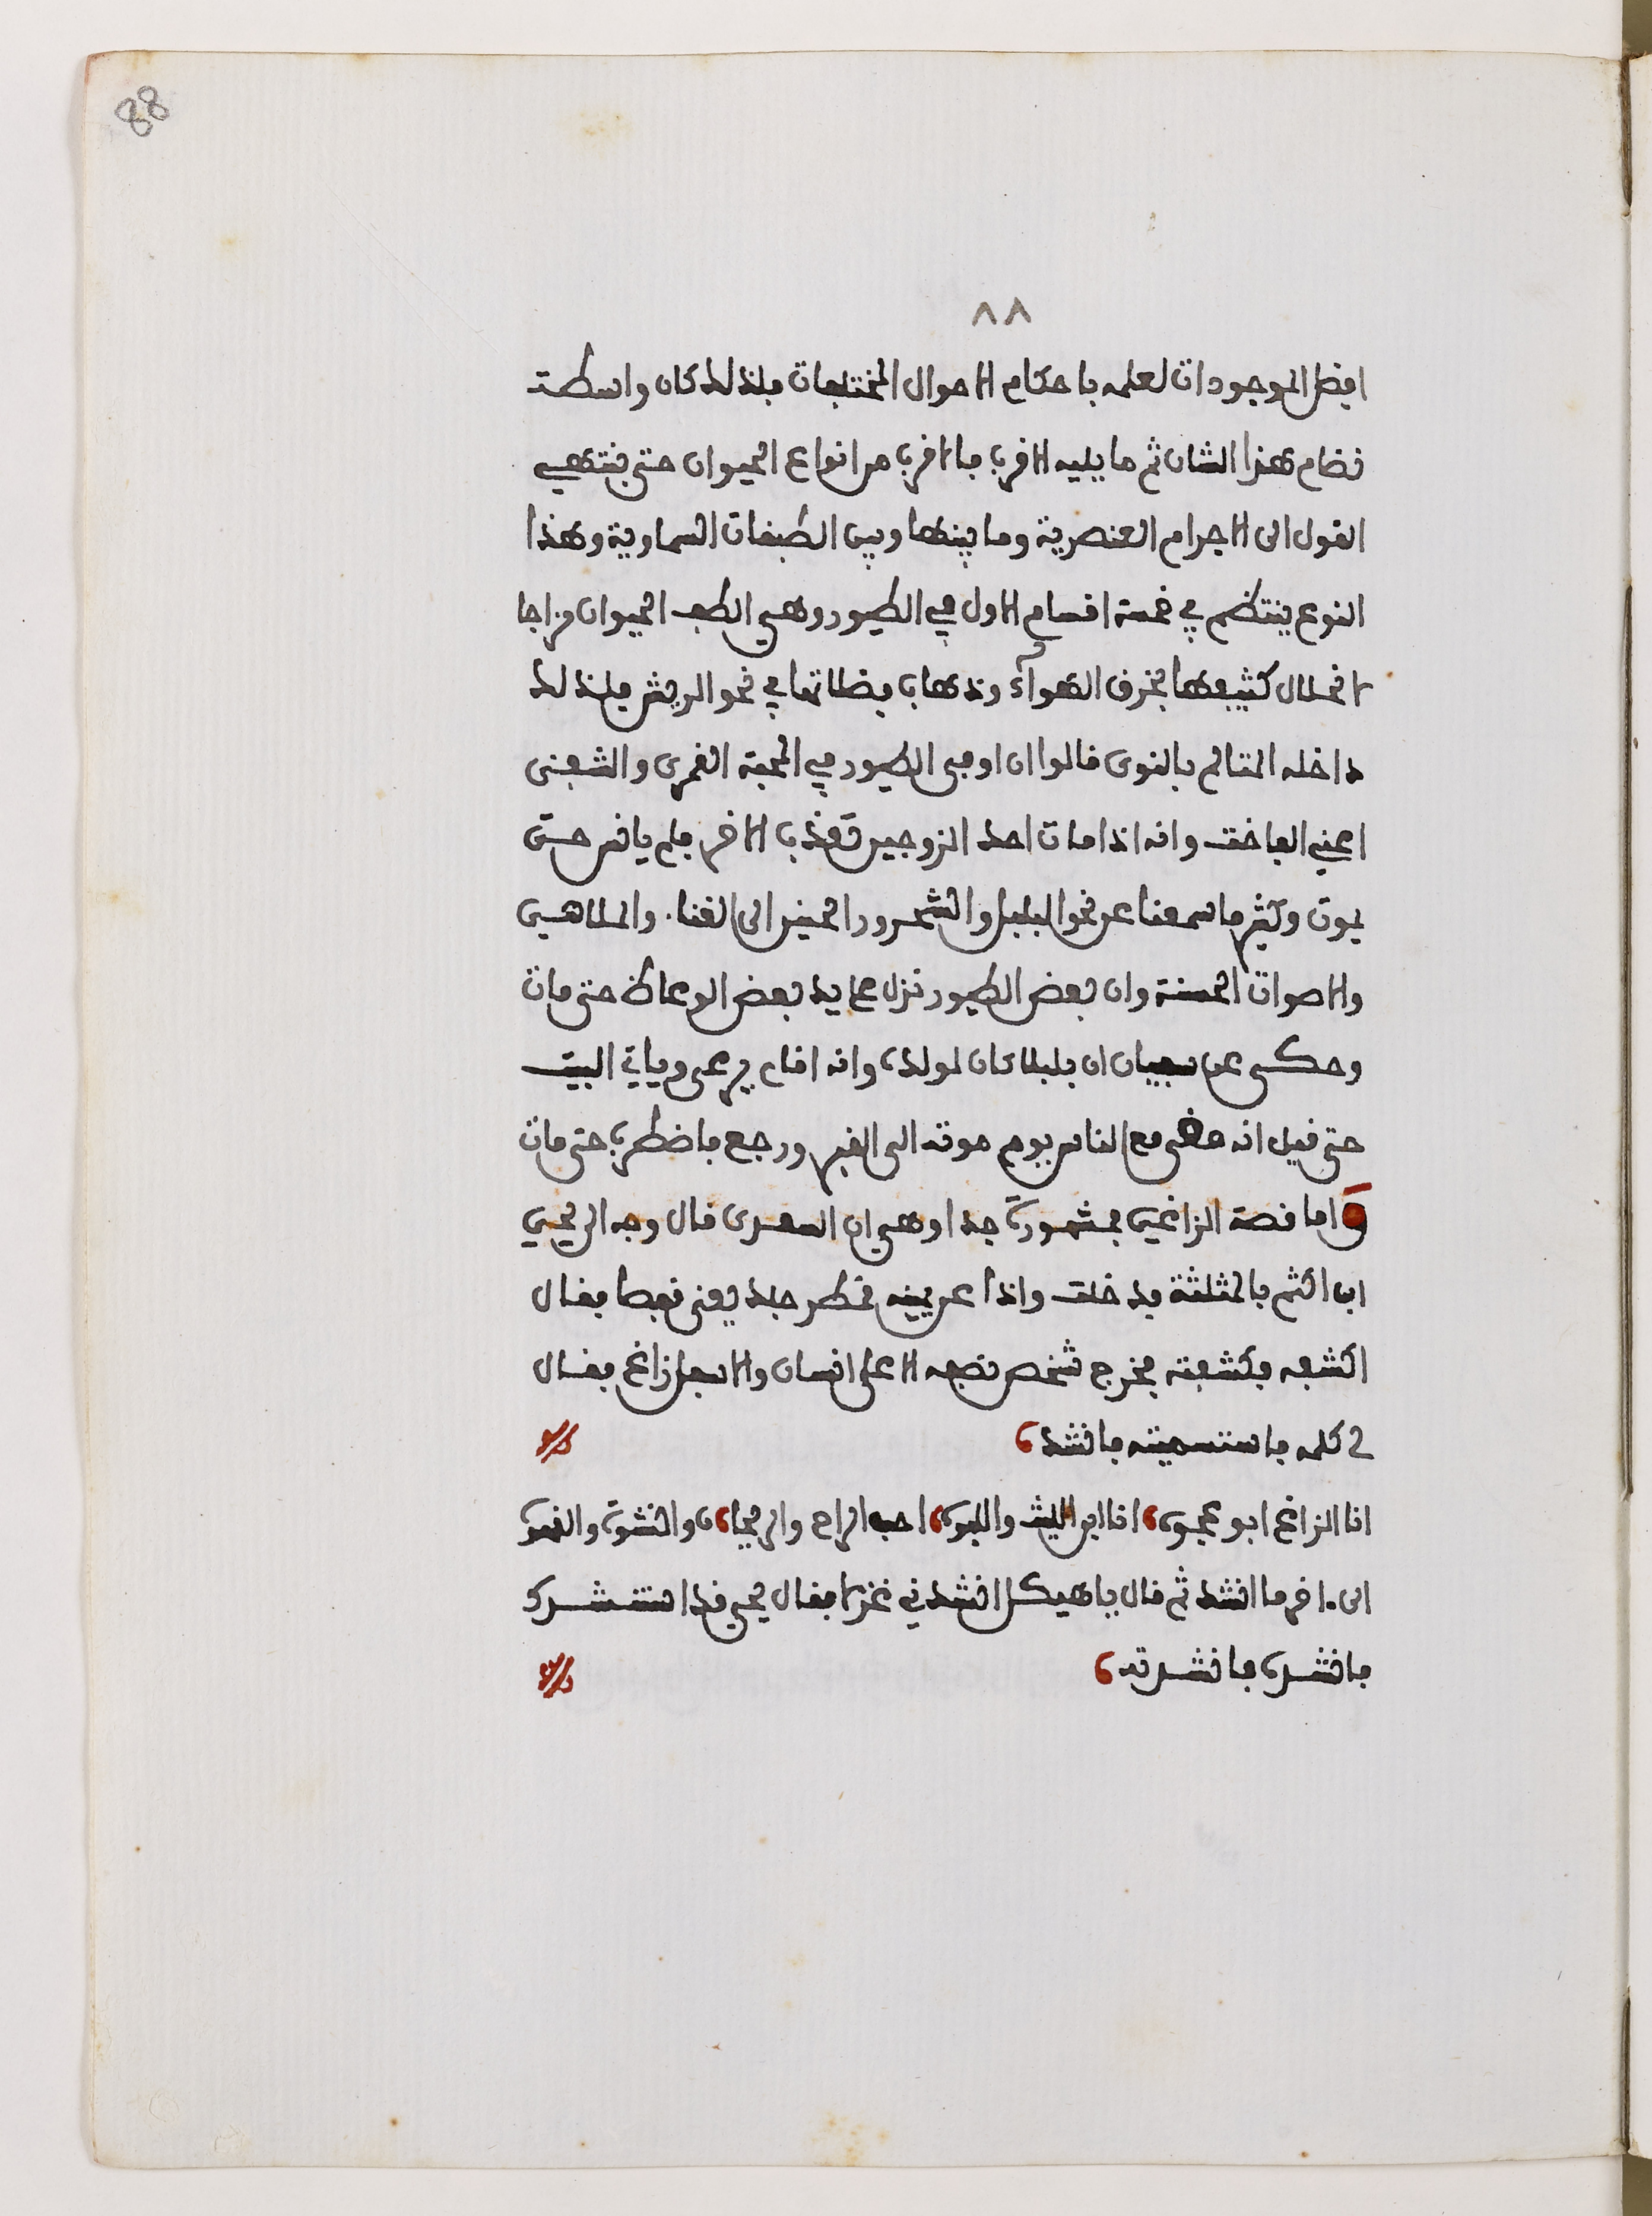 88
٨٨
افضل الموجودات لعلمه باحكام الاحوال المختلفات فلذلك كان واسطة
نضام هذا الشان ثم ما يليه الاقرب فالاقرب من انواع الحيوان حتى ينتهي
القول الى الاجرام العنصرية وما بينها وبين الطبقات السماوية وهذا
النوع ينتظم في خمسة اقسام الاول في الطيور وهي الطف الحيوان مزاجا
لانحلال كثيفها بخرق الهوآء وذهاب فضلاتها في نحو الريش فلذلك
داخله التالم بالنوى قالوا ان اوفى الطيور في المحبة القمري والشفنى
اعني الفاخت وانه اذا مات احد الزوجين تعذب الاخر فلم يانس حتى
يموت وكثير ما سمعنا عن نحو البلبل والشحرور الحنين الى الغنا. والملاهي
والاصوات الحسنة وان بعض الطيور نزل على يد بعض الوعاظ حتى مات
وحكى عن سفيان ان بلبلا كان لولده وانه اقام يرعى وياتي البيت
حتى قيل انه مضى مع الناس يوم موته الى القبر ورجع فاضطرب حتى مات
واما قصة الزاغين فمشهورة جدا وهي ان السعدى قال وجه الى يحيي
ابن اكثم بالمثلثة فدخلت واذا عن يمينه قمطر جلد يعني قفصا فقال
اكشفه فكشفته فخرج شخص نصفه الاعلى انسان والاسفل زاغ فقال
لي كلمه فاستسميته فانشد
انا الزاغ ابو عجوه انا ابن الليث واللبوه احب الراح والريحان والنشوة والقهوه
الى. اخر ما انشد ثم قال يا هيكل انشدني غزلا فقال يحيى قد استنشدك
فانشده فانشدته